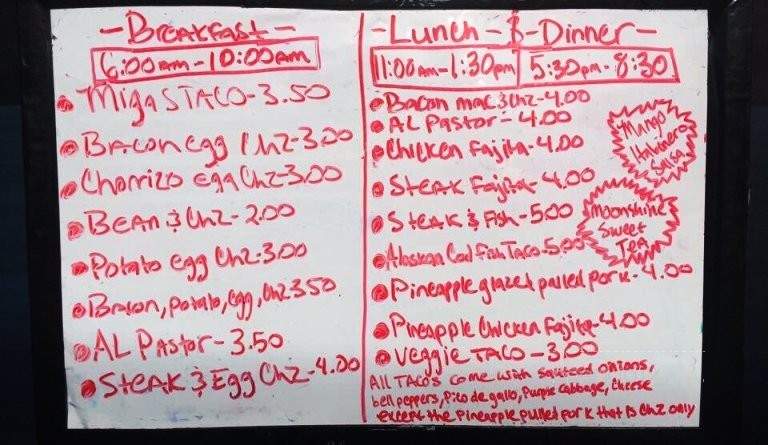 -Breakfast-
6:00am-10:00am
Migas TACO-3.50
Bacon egg Chz-3.00
Chorrizo egg Chz-3.00
Bean & Chz-2.00
Potato egg Chz-3.00
Bacon, potato, egg, Chz 3.50
AL Pastor-3.50
Steak & Egg Chz-4.00
-Lunch-&-Dinner-
11:00am-1:30pm 5:30pm-8:30
Bacon mac & Chz-4.00
AL Pastor-4.00
Chicken Fajita-4.00
Steak Fajita-4.00
Steak & Fish-5.00
Alaskan Cod fish Taco-5.00
Pineapple glazed pulled pork-4.00
Pineapple Chicken Fajita-4.00
Veggie TACO-3.00
All TACO's come with sauteed onions,
bell peppers, Pico de gallo, Purple Cabbage, Cheese
except the Pineapple pulled pork that is Chz only
Mango
Habinero
Salsa
Moonshine
Sweet
Tea